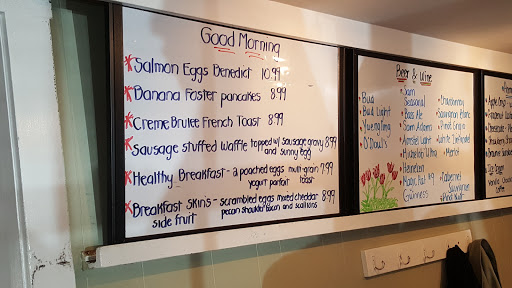 Good Morning
Salmon Eggs Benedict 10.99
Banana Foster pancakes 8.99
Creme Brulee French Toast 8.99
Sausage stuffed Waffle topped w/ sausage gravy 8.99
and sunny egg
Healthy Breakfast - 2 poached eggs multi-grain 7.99
yogurt parfait toast
Breakfast Skins - scrambled eggs mixed cheddar 8.99
side fruit pecan shoulder bacon and scallions
Beer & Wine
Bud
Bud Light
Yuengling
O'Doul's
Sam
Seasonal
Bass Ale
Sam Adams
Amstel Light
Heineken
Guinness
Chardonnay
Sauvignon Blanc
Pinot Grigio
White Zinfandel
Merlot
Cabernet
Sauvignon
Pinot Noir